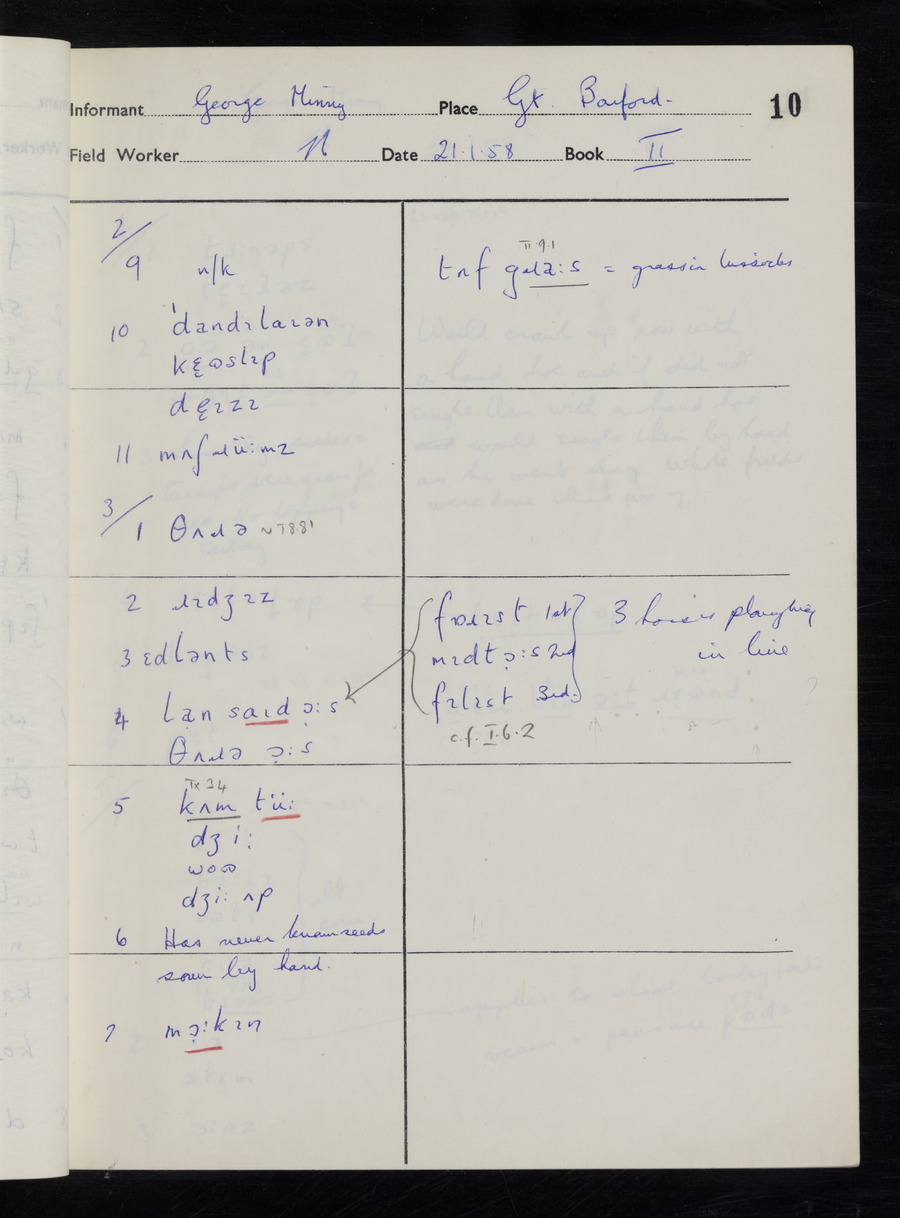 Informant George Minny Place Gt. Barford. 10
Field Worker N Date 21.1.58 Book II
2/
9 n/k
10 ˈdandɪlaɪən
kɛ̣ʊslɪp
dɛ̣ɪzɪ
11 mʌʃɹüːmz
3/
1 θʌɹə ~I 8.8¹
2 ɹɪdʒɪz
3 ɛdlənts
4 lan saɪd ɔ̣ːs
θʌɹə ɔ̣ːs
5 IX 3 4
kʌm tüː
dʒiː
woʊ
dʒiː ʌp
6 Has never known seeds
sown by hand.
7 mɔ̣ːkɪn
II.9.1
tʌf gɹạːs = grass in tussocks
1st
mɪdɫ ɔ̣ːs 2nd
3rd.
3 horses ploughing
in line
c.f. I.6.2